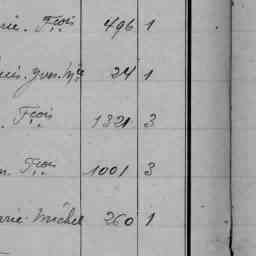 rie. Fçois 496 1
uis. Yves. Mie 24 1
. Fçois 1321 3
n. Fçois 1001 3
arie. Michel 260 1